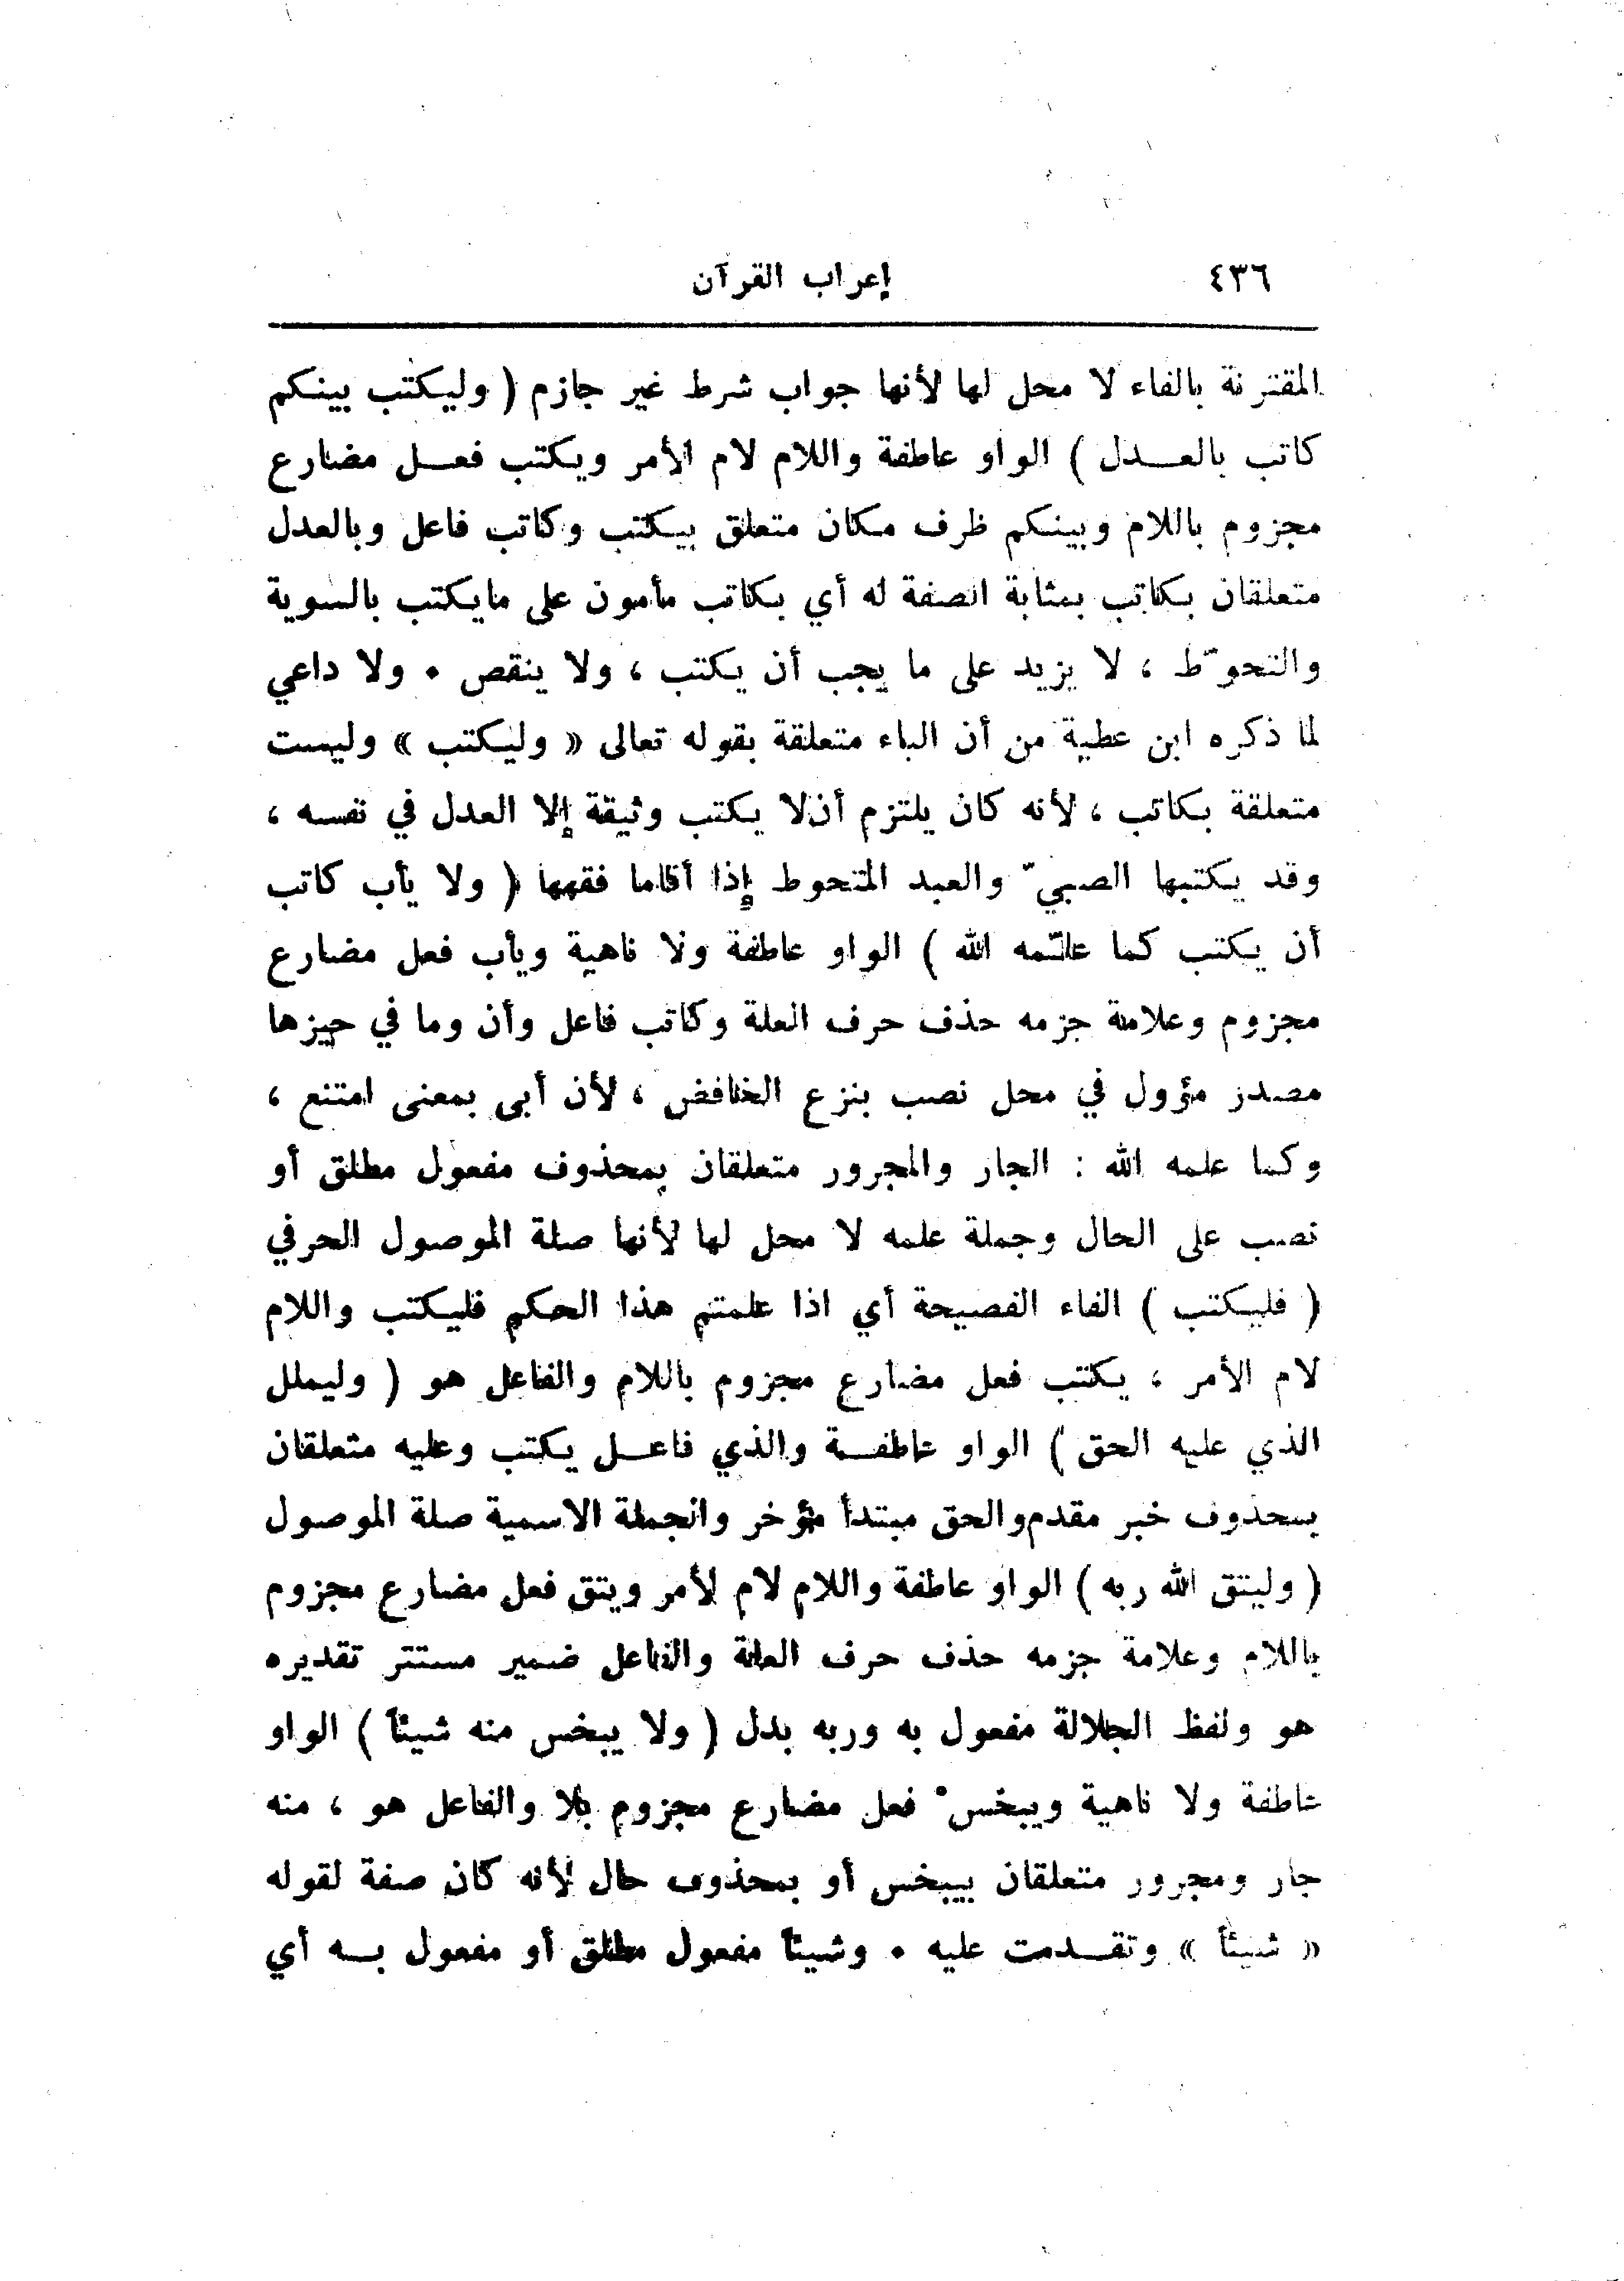 ٤٣٦ إعراب القرآن
المقترنة بالفاء لا محل لها لأنها جواب شرط غير جازم ( وليكتب بينكم
كاتب بالعدل ) الواو عاطفة واللام لام الأمر ويكتب فعل مضارع
مجزوم باللام وبينكم ظرف مكان متعلق بيكتب وكاتب فاعل وبالعدل
متعلقان بكاتب بمثابة الصفة له أي بكاتب مأمون على مايكتب بالسوية
والتحوّط ، لا يزيد على ما يجب أن يكتب ، ولا ينقص . ولا داعي
لما ذكره ابن عطية من أن الباء متعلقة بقوله تعالى « وليكتب » وليست
متعلقة بكاتب ، لأنه كان يلتزم أن لا يكتب وثيقة إلا العدل في نفسه ،
وقد يكتبها الصبيّ والعبد المتحوط إذا أقاما فقهها ( ولا يأب كاتب
أن يكتب كما علّمه الله ) الواو عاطفة ولا ناهية ويأب فعل مضارع
مجزوم وعلامة جزمه حذف حرف العلة وكاتب فاعل وأن وما في حيزها
مصدر مؤول في محل نصب بنزع الخافض ، لأن أبى بمعنى امتنع ،
وكما علمه الله : الجار والمجرور متعلقان بمحذوف مفعول مطلق أو
نصب على الحال وجملة علمه لا محل لها لأنها صلة الموصول الحرفي
( فليكتب ) الفاء الفصيحة أي اذا علمتم هذا الحكم فليكتب واللام
لام الأمر ، يكتب فعل مضارع مجزوم باللام والفاعل هو ( وليملل
الذي عليه الحق ) الواو عاطفة والذي فاعل يكتب وعليه متعلقان
بمحذوف خبر مقدم والحق مبتدأ مؤخر والجملة الاسمية صلة الموصول
( وليتق الله ربه ) الواو عاطفة واللام لام لأمر ويتق فعل مضارع مجزوم
باللام وعلامة جزمه حذف حرف العلة والفاعل ضمير مستتر تقديره
هو ولفظ الجلالة مفعول به وربه بدل ( ولا يبخس منه شيئاً ) الواو
عاطفة ولا ناهية ويبخسْ فعل مضارع مجزوم بلا والفاعل هو ، منه
جار ومجرور متعلقان بيبخس أو بمحذوف حال لأنه كان صفة لقوله
« شيئاً » وتقدمت عليه . وشيئاً مفعول مطلق أو مفعول به أي